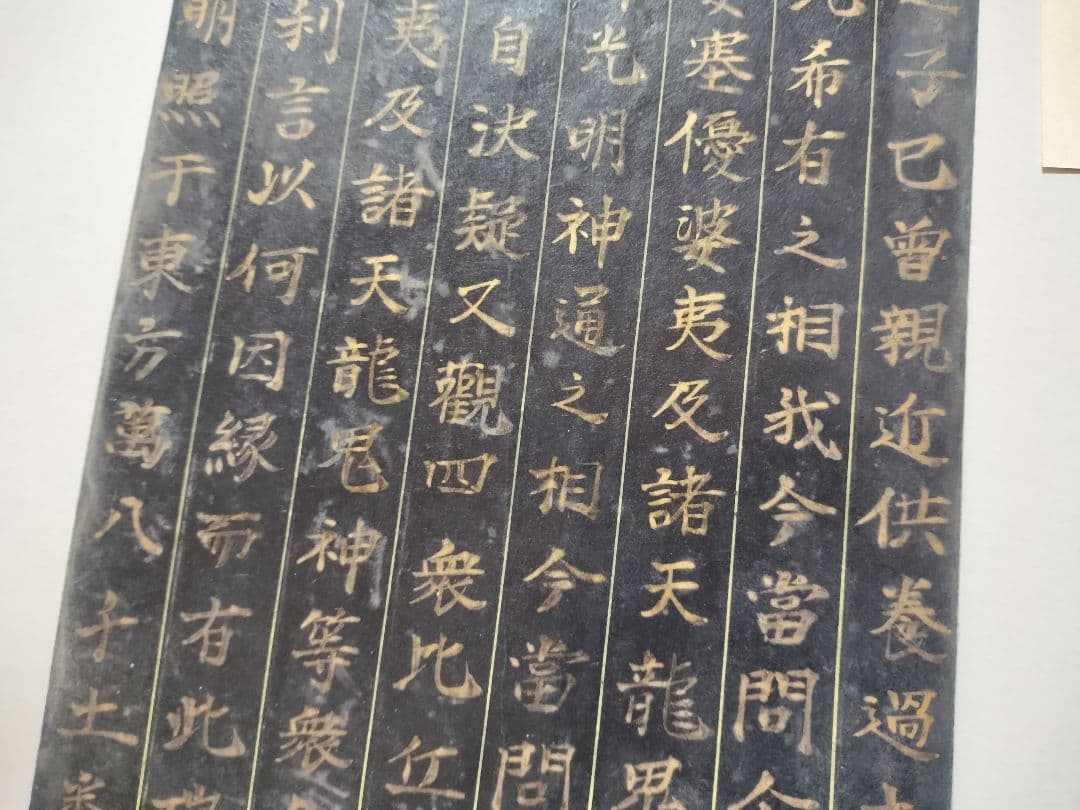 子已曾親近供養過
希有之相我今當問
塞優婆夷及諸天龍鬼
光明神通之相今當問
自決疑又觀四衆比丘
夷及諸天龍鬼神等衆
利言以何因緣而有此
明照于東方萬八千土